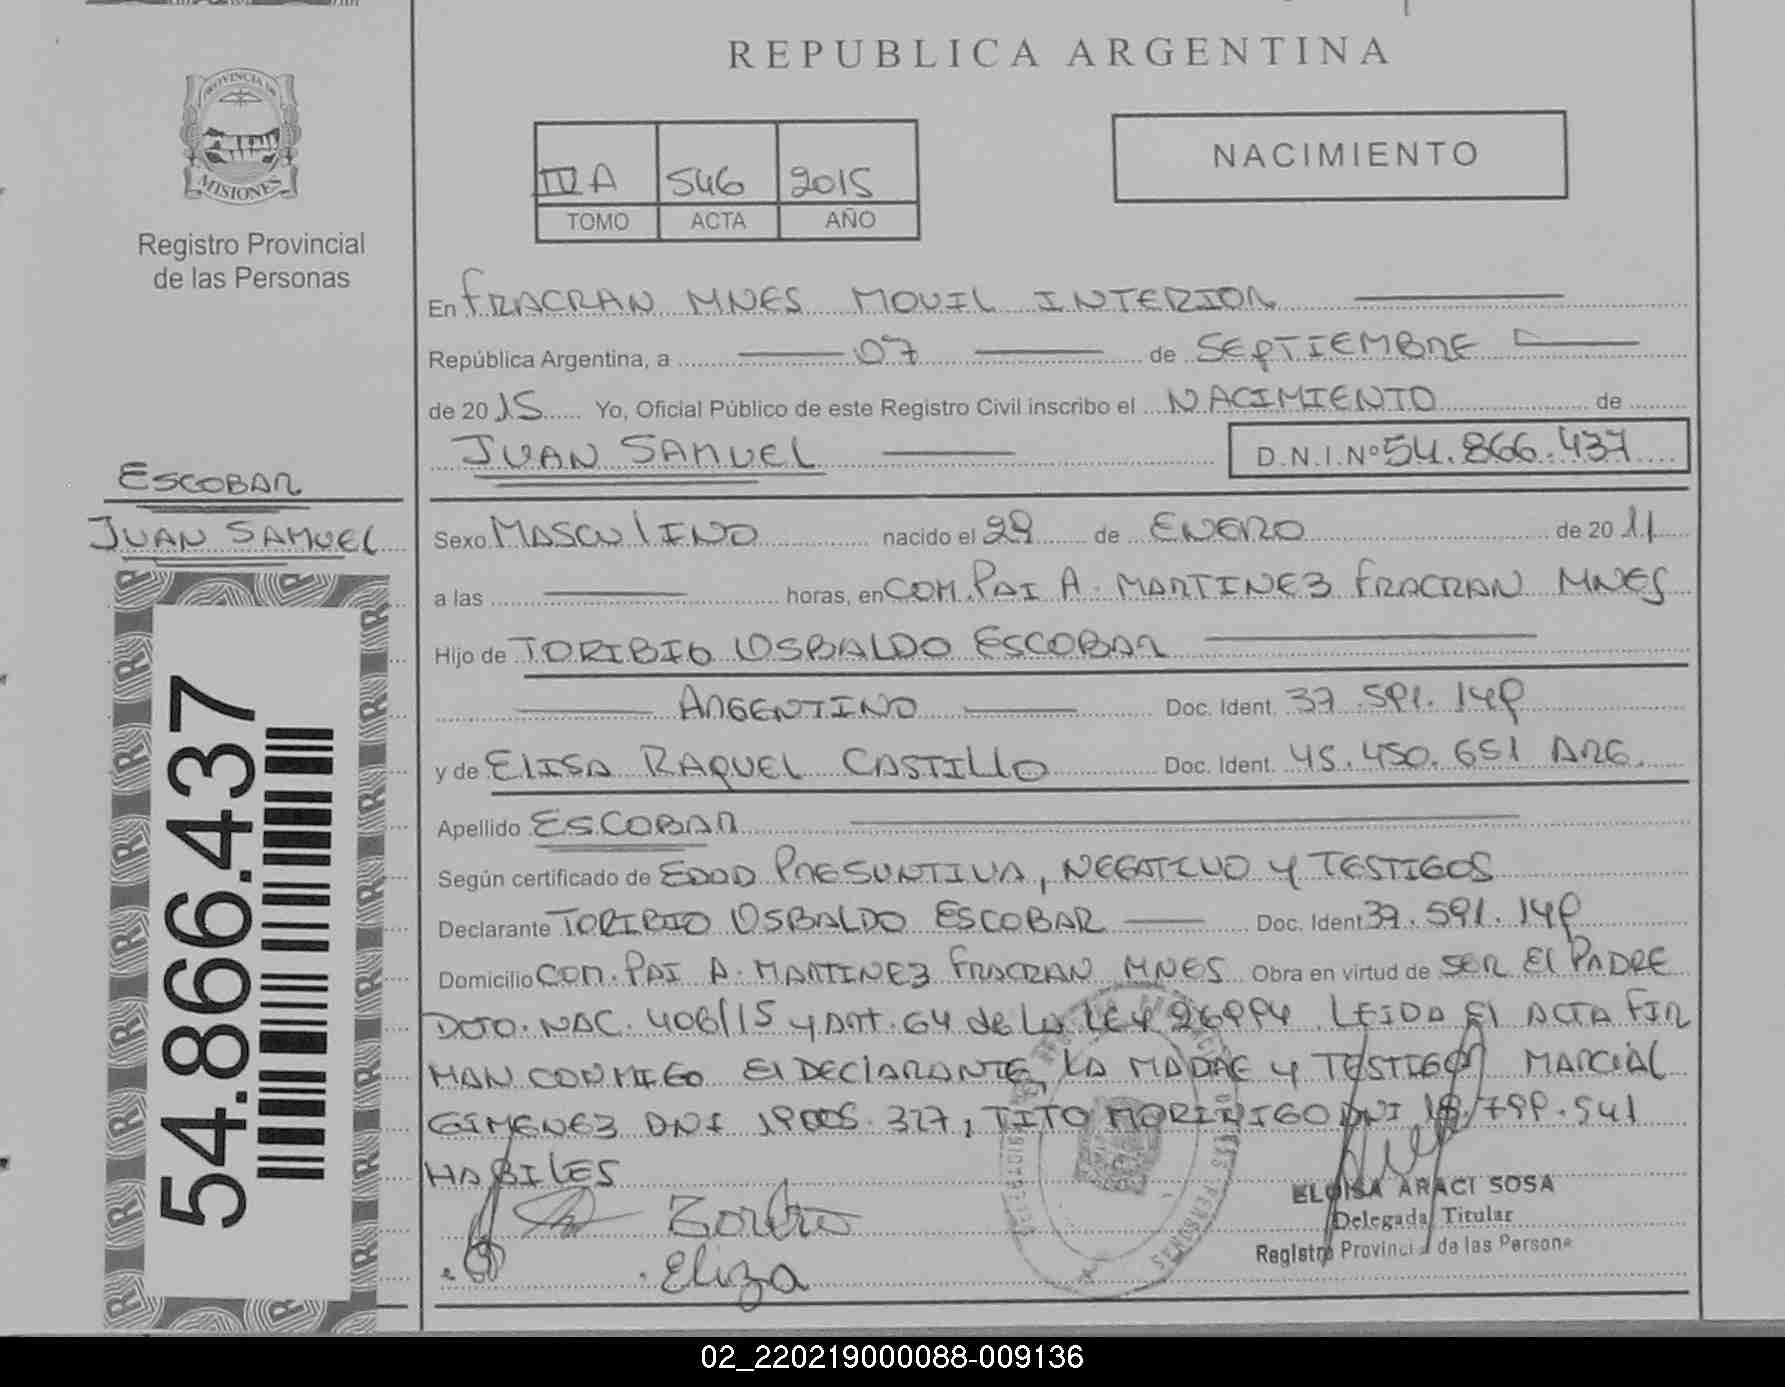 REPUBLICA ARGENTINA
PROVINCIA DE
MISIONES
Registro Provincial
de las Personas
IV A 546 2015
TOMO ACTA AÑO
NACIMIENTO
En FRACRAN MNES MOVIL INTERIOR
República Argentina, a 07 de SEPTIEMBRE
de 2015 Yo, Oficial Público de este Registro Civil inscribo el NACIMIENTO de
JUAN SAMUEL D.N.I.Nº 54.866.437
ESCOBAR
JUAN SAMUEL
Sexo MASCULINO nacido el 29 de ENERO de 2011
a las horas, en COM. PAI A. MARTINEZ FRACRAN MNES
Hijo de TORIBIO OSBALDO ESCOBAR
ARGENTINO Doc. Ident. 37.591.149
y de ELISA RAQUEL CASTILLO Doc. Ident. 45.450.651 ARG.
Apellido ESCOBAR
Según certificado de EDAD PRESUNTIVA, NEGATIVO Y TESTIGOS
Declarante TORIBIO OSBALDO ESCOBAR Doc. Ident 39.591.149
Domicilio COM. PAI A. MARTINEZ FRACRAN MNES Obra en virtud de SER El PADRE
DCTO. NAC. 406/15 y ART. 64 de La LEY 26994 LEIDA El ACTA FIR
MAN CONMIGO El DECLARANTE, LA MADRE Y TESTIGOS MARCIAL
GIMENEZ DNI 19.005.327, TITO MORINIGO DNI 18.799.541
HABILES
Eliza
ELOISA ARACI SOSA
Delegada Titular
Registro Provincial de las Persona
54.866.437
02_220219000088-009136